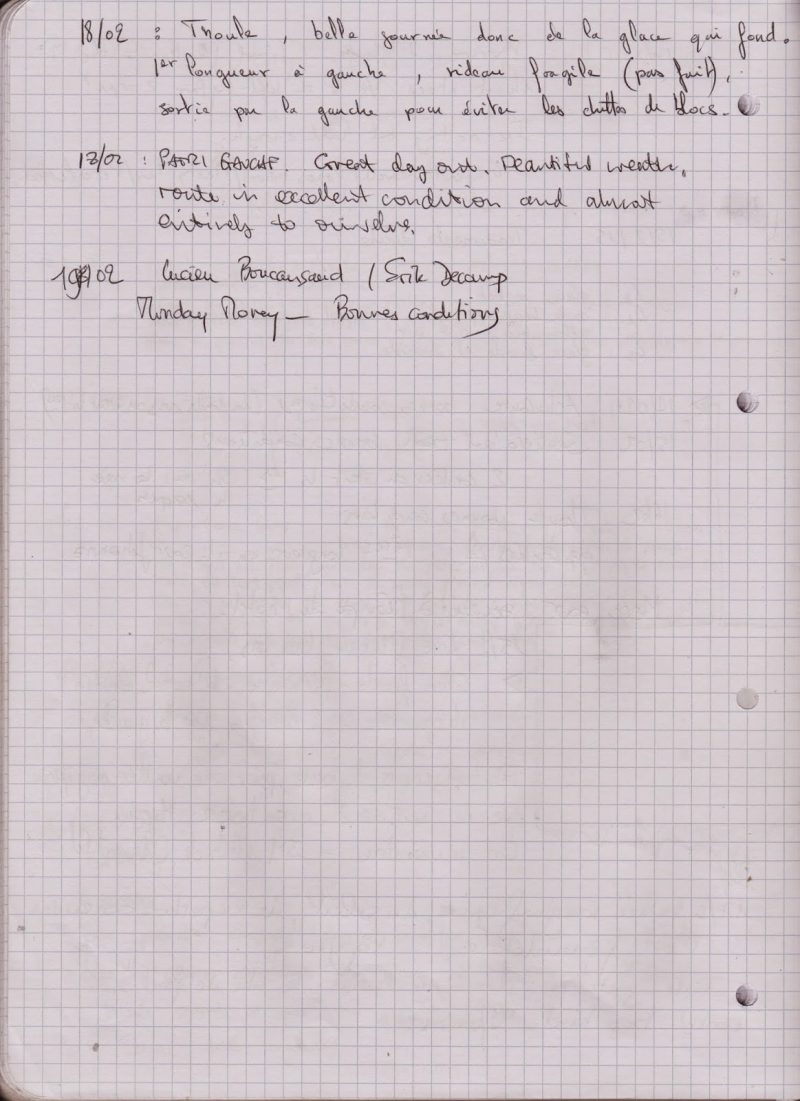 18/02 : Thoule, belle journée donc de la glace qui fond.
1er longueur à gauche, rideau fragile (pas fait),
sortie par la gauche pour éviter les chuttes de blocs.
17/02 : PATRI GAUCHE. Great day out. Beautiful weather,
route in excellent condition and almost
entirely to ourselves.
19/02 Lucien Boucansaud / Erik Decamp
Monday Money — Bonnes conditions